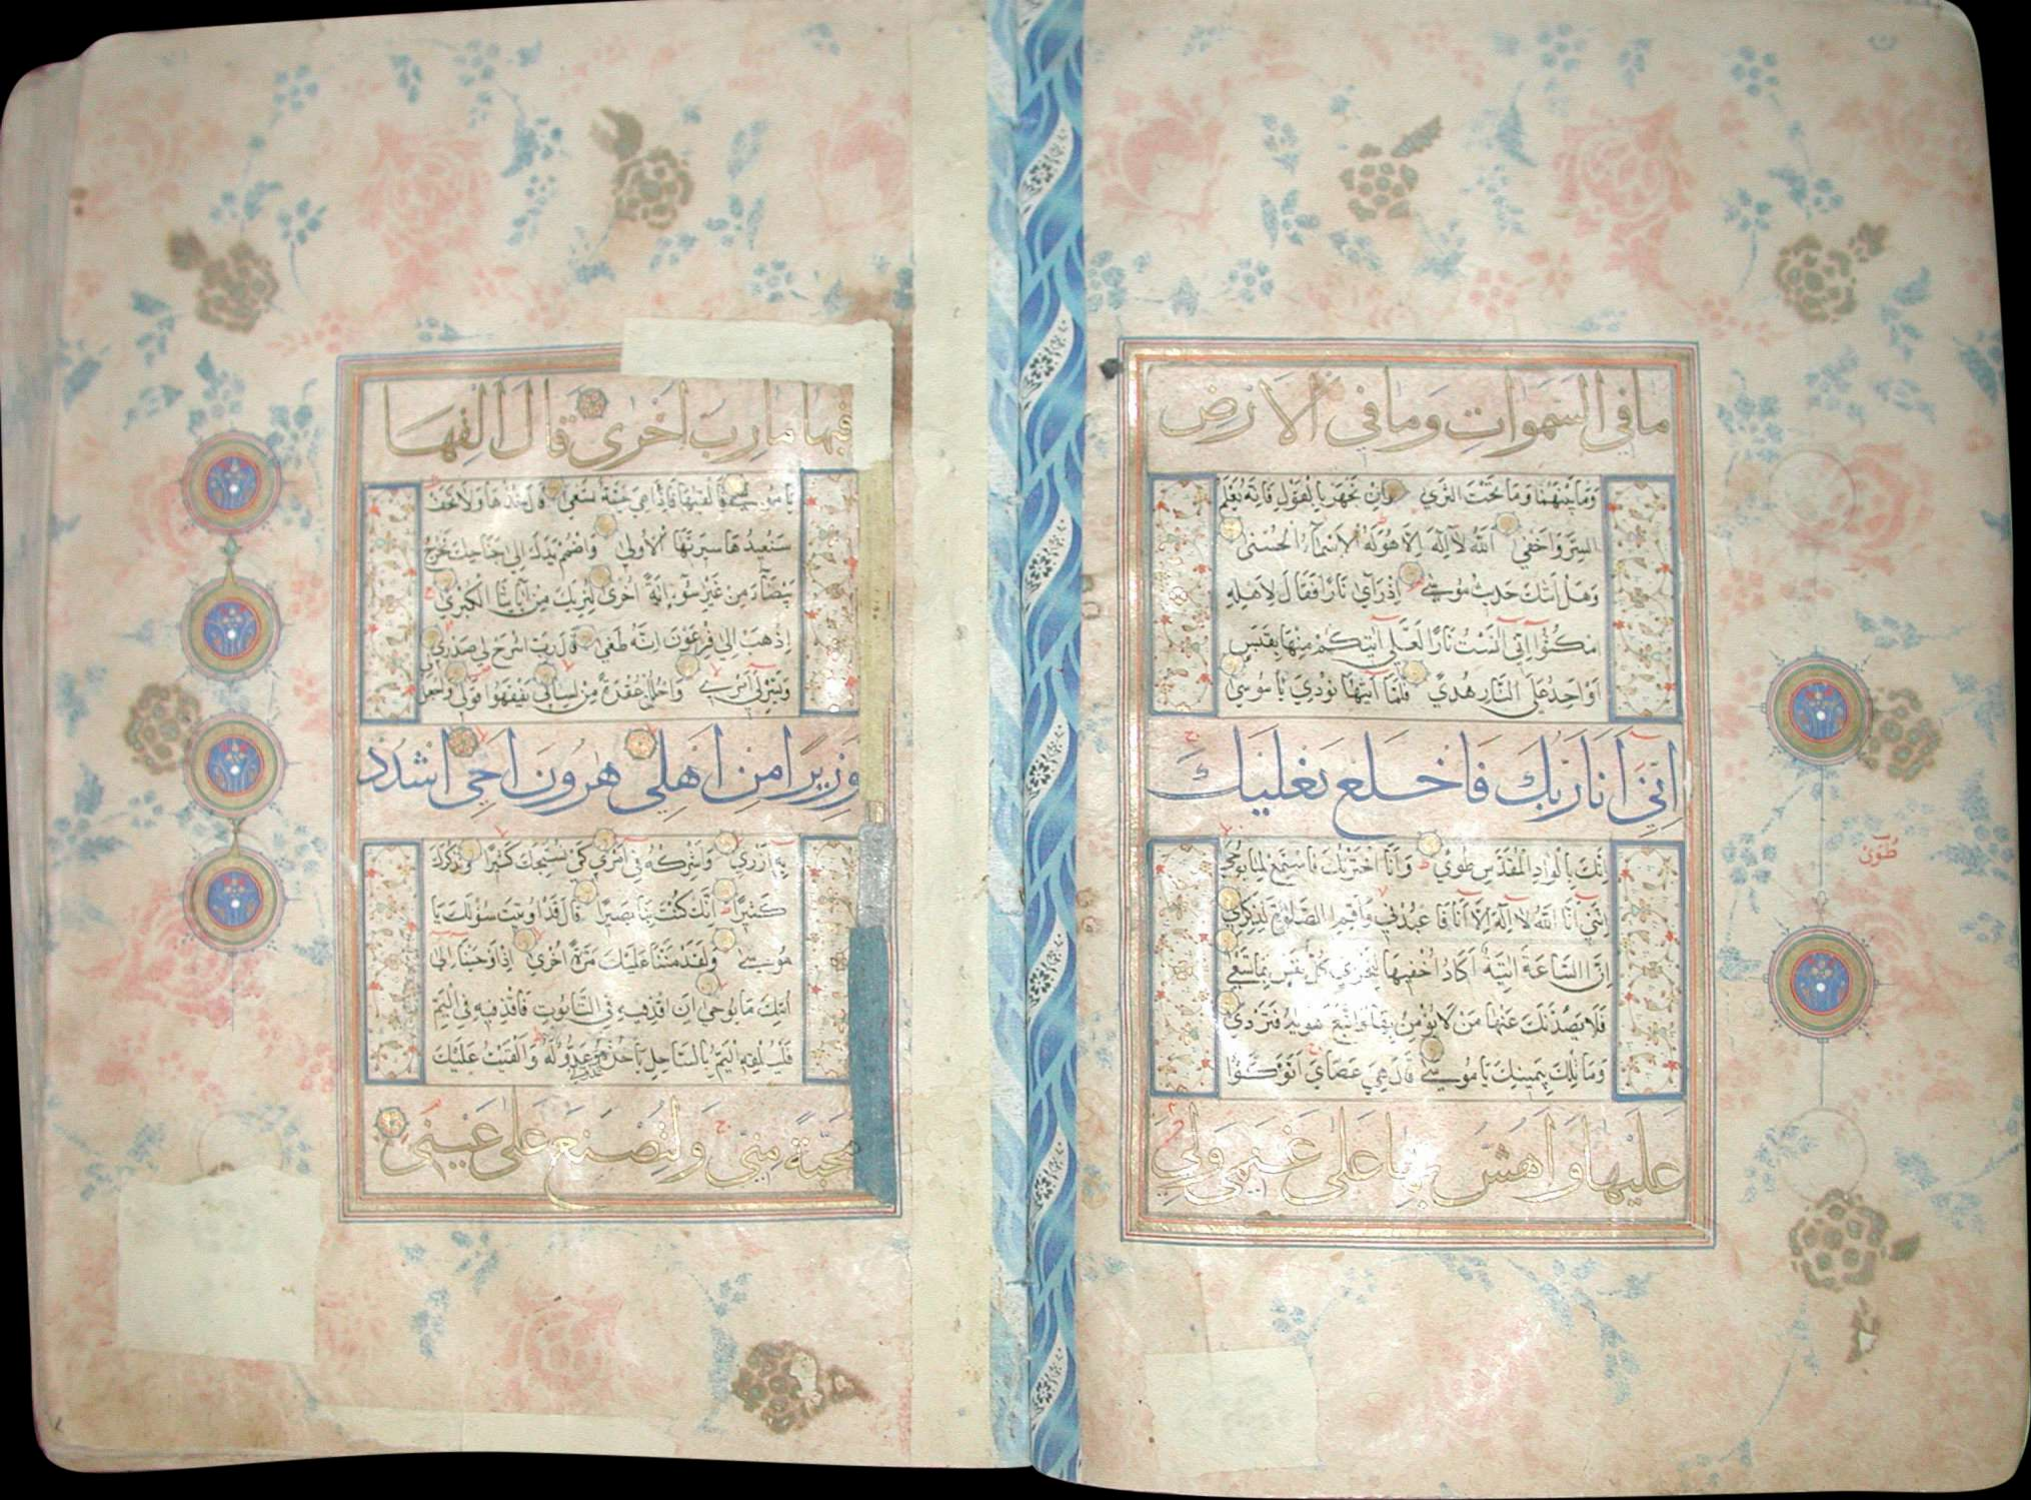 ما في السموات وما في الارض
وما بينهما وما تحت الثرى وان تجهر بالقول فانه يعلم
السر واخفى الله لا اله الا هو له الاسماء الحسنى
وهل اتيك حديث موسى اذ رآى نارا فقال لاهله
امكثوا انى آنست نارا لعلى آتيكم منها بقبس
او اجد على النار هدى فلما آتيها نودي يا موسى
انى انا ربك فاخلع نعليك
انك بالواد المقدس طوى وانا اخترتك فاستمع لما يوحى
اننى انا الله لا اله الا انا فاعبدنى واقم الصلوة لذكرى
ان الساعة اتية اكاد اخفيها لتجزى كل نفس بما تسعى
فلا يصدنك عنها من لا يؤمن بها واتبع هويه فتردى
وما تلك بيمينك يا موسى قال هى عصاى اتوكؤا
عليها واهش بها على غنمى ولى
طوى
فيها مارب اخرى قال القها
يا موسى فالقيها فاذا هى حية تسعى قال خذها ولا تخف
سنعيدها سيرتها الاولى واضمم يدك الى جناحك تخرج
بيضاء من غير سوء اية اخرى لنريك من آياتنا الكبرى
اذهب الى فرعون انه طغى قال رب اشرح لى صدرى
ويسر لى امرى واحلل عقدة من لسانى يفقهوا قولى واجعل
وزيرا من اهلى هرون اخى اشدد
به ازرى واشركه فى امرى كى نسبحك كثيرا ونذكرك
كثيرا انك كنت بنا بصيرا قال قد اوتيت سؤلك يا
موسى ولقد مننا عليك مرة اخرى اذ اوحينا الى
امك ما يوحى ان اقذفيه فى التابوت فاقذفيه فى اليم
فليلقه اليم بالساحل ياخذه عدو له والقيت عليك
محبة منى ولتصنع على عينى